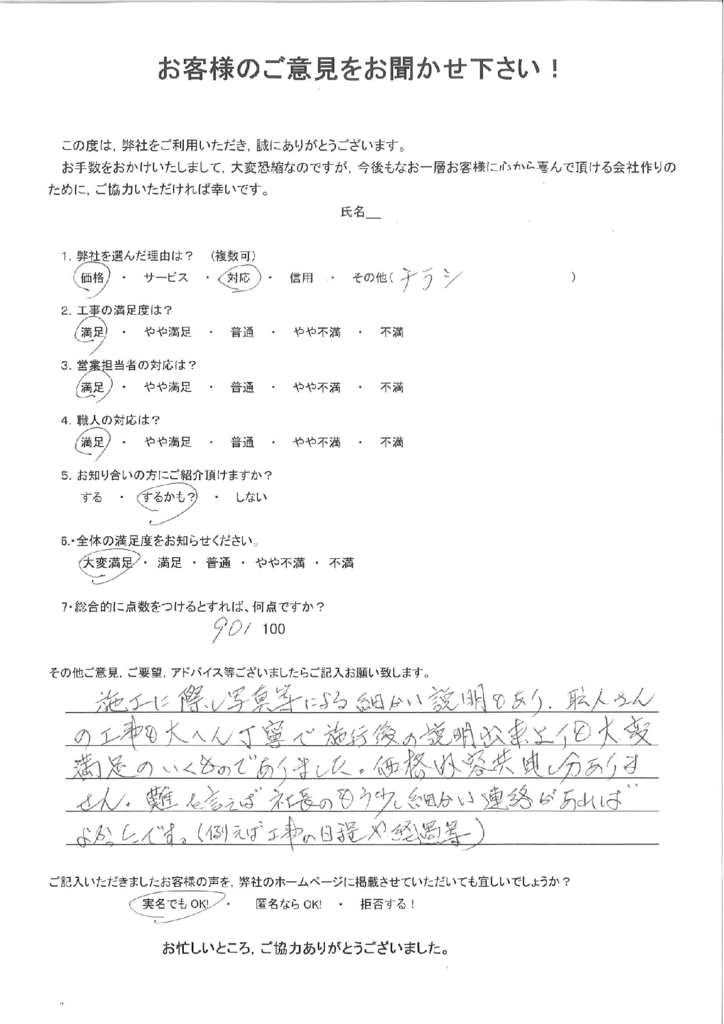 お客様のご意見をお聞かせ下さい！
この度は，弊社をご利用いただき，誠にありがとうございます。
お手数をおかけいたしまして，大変恐縮なのですが，今後もなお一層お客様に心から喜んで頂ける会社作りの
ために，ご協力いただければ幸いです。
氏名
1．弊社を選んだ理由は？　（複数可）
価格　・　サービス　・　対応　・　信用　・　その他（チラシ　）
2．工事の満足度は？
満足　・　やや満足　・　普通　・　やや不満　・　不満
3．営業担当者の対応は？
満足　・　やや満足　・　普通　・　やや不満　・　不満
4．職人の対応は？
満足　・　やや満足　・　普通　・　やや不満　・　不満
5．お知り合いの方にご紹介頂けますか？
する　・　するかも？　・　しない
6.・全体の満足度をお知らせください。
大変満足　・　満足　・　普通　・　やや不満　・　不満
7・総合的に点数をつけるとすれば、何点ですか？
90/ 100
その他ご意見，ご要望，アドバイス等ございましたらご記入お願い致します。
施工に際し写真等による細かい説明もあり、職人さん
の工事も大へん丁寧で施行後の説明出来上りも大変
満足のいくものでありました。価格内容共申し分ありま
せん。難を言えば社長のもう少し細かい連絡があれば
よかったです。（例えば工事の日程や経過等）
ご記入いただきましたお客様の声を，弊社のホームページに掲載させていただいても宜しいでしょうか？
実名でもOK!　・　匿名ならOK!　・　拒否する！
お忙しいところ，ご協力ありがとうございました。